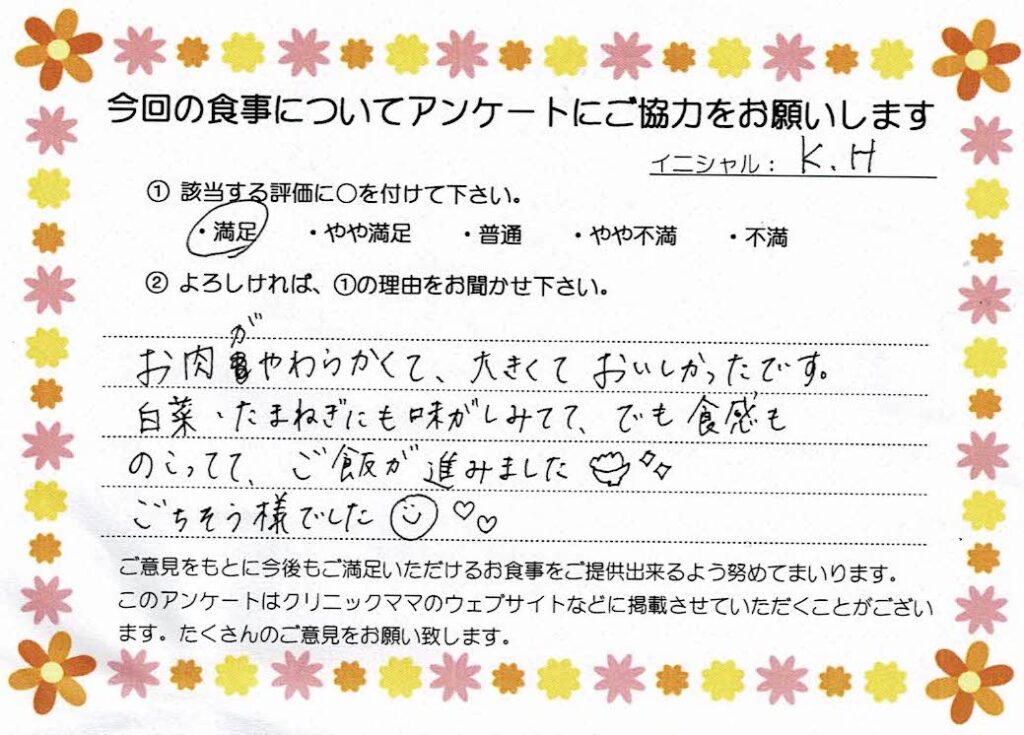 今回の食事についてアンケートにご協力をお願いします
イニシャル： K.H
① 該当する評価に○を付けて下さい。
・満足 ・やや満足 ・普通 ・やや不満 ・不満
② よろしければ、①の理由をお聞かせ下さい。
お肉がやわらかくて、大きくておいしかったです。
白菜・たまねぎにも味がしみてて、でも食感も
のこってて、ご飯が進みました
ごちそう様でした
ご意見をもとに今後もご満足いただけるお食事をご提供出来るよう努めてまいります。
このアンケートはクリニックママのウェブサイトなどに掲載させていただくことがござい
ます。たくさんのご意見をお願い致します。